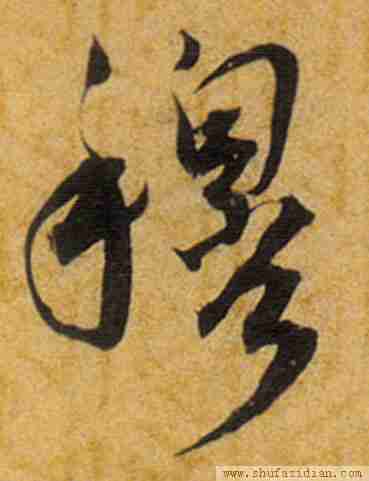 穆
www.shufazidian.com